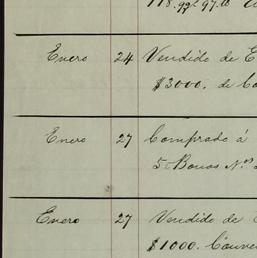 118.92 97.10
Enero 24 Vendido de E
$3000. de Co
Enero 27 Comprado á
5 Bonos Nos
Enero 27 Vendido de
$1000. Conver